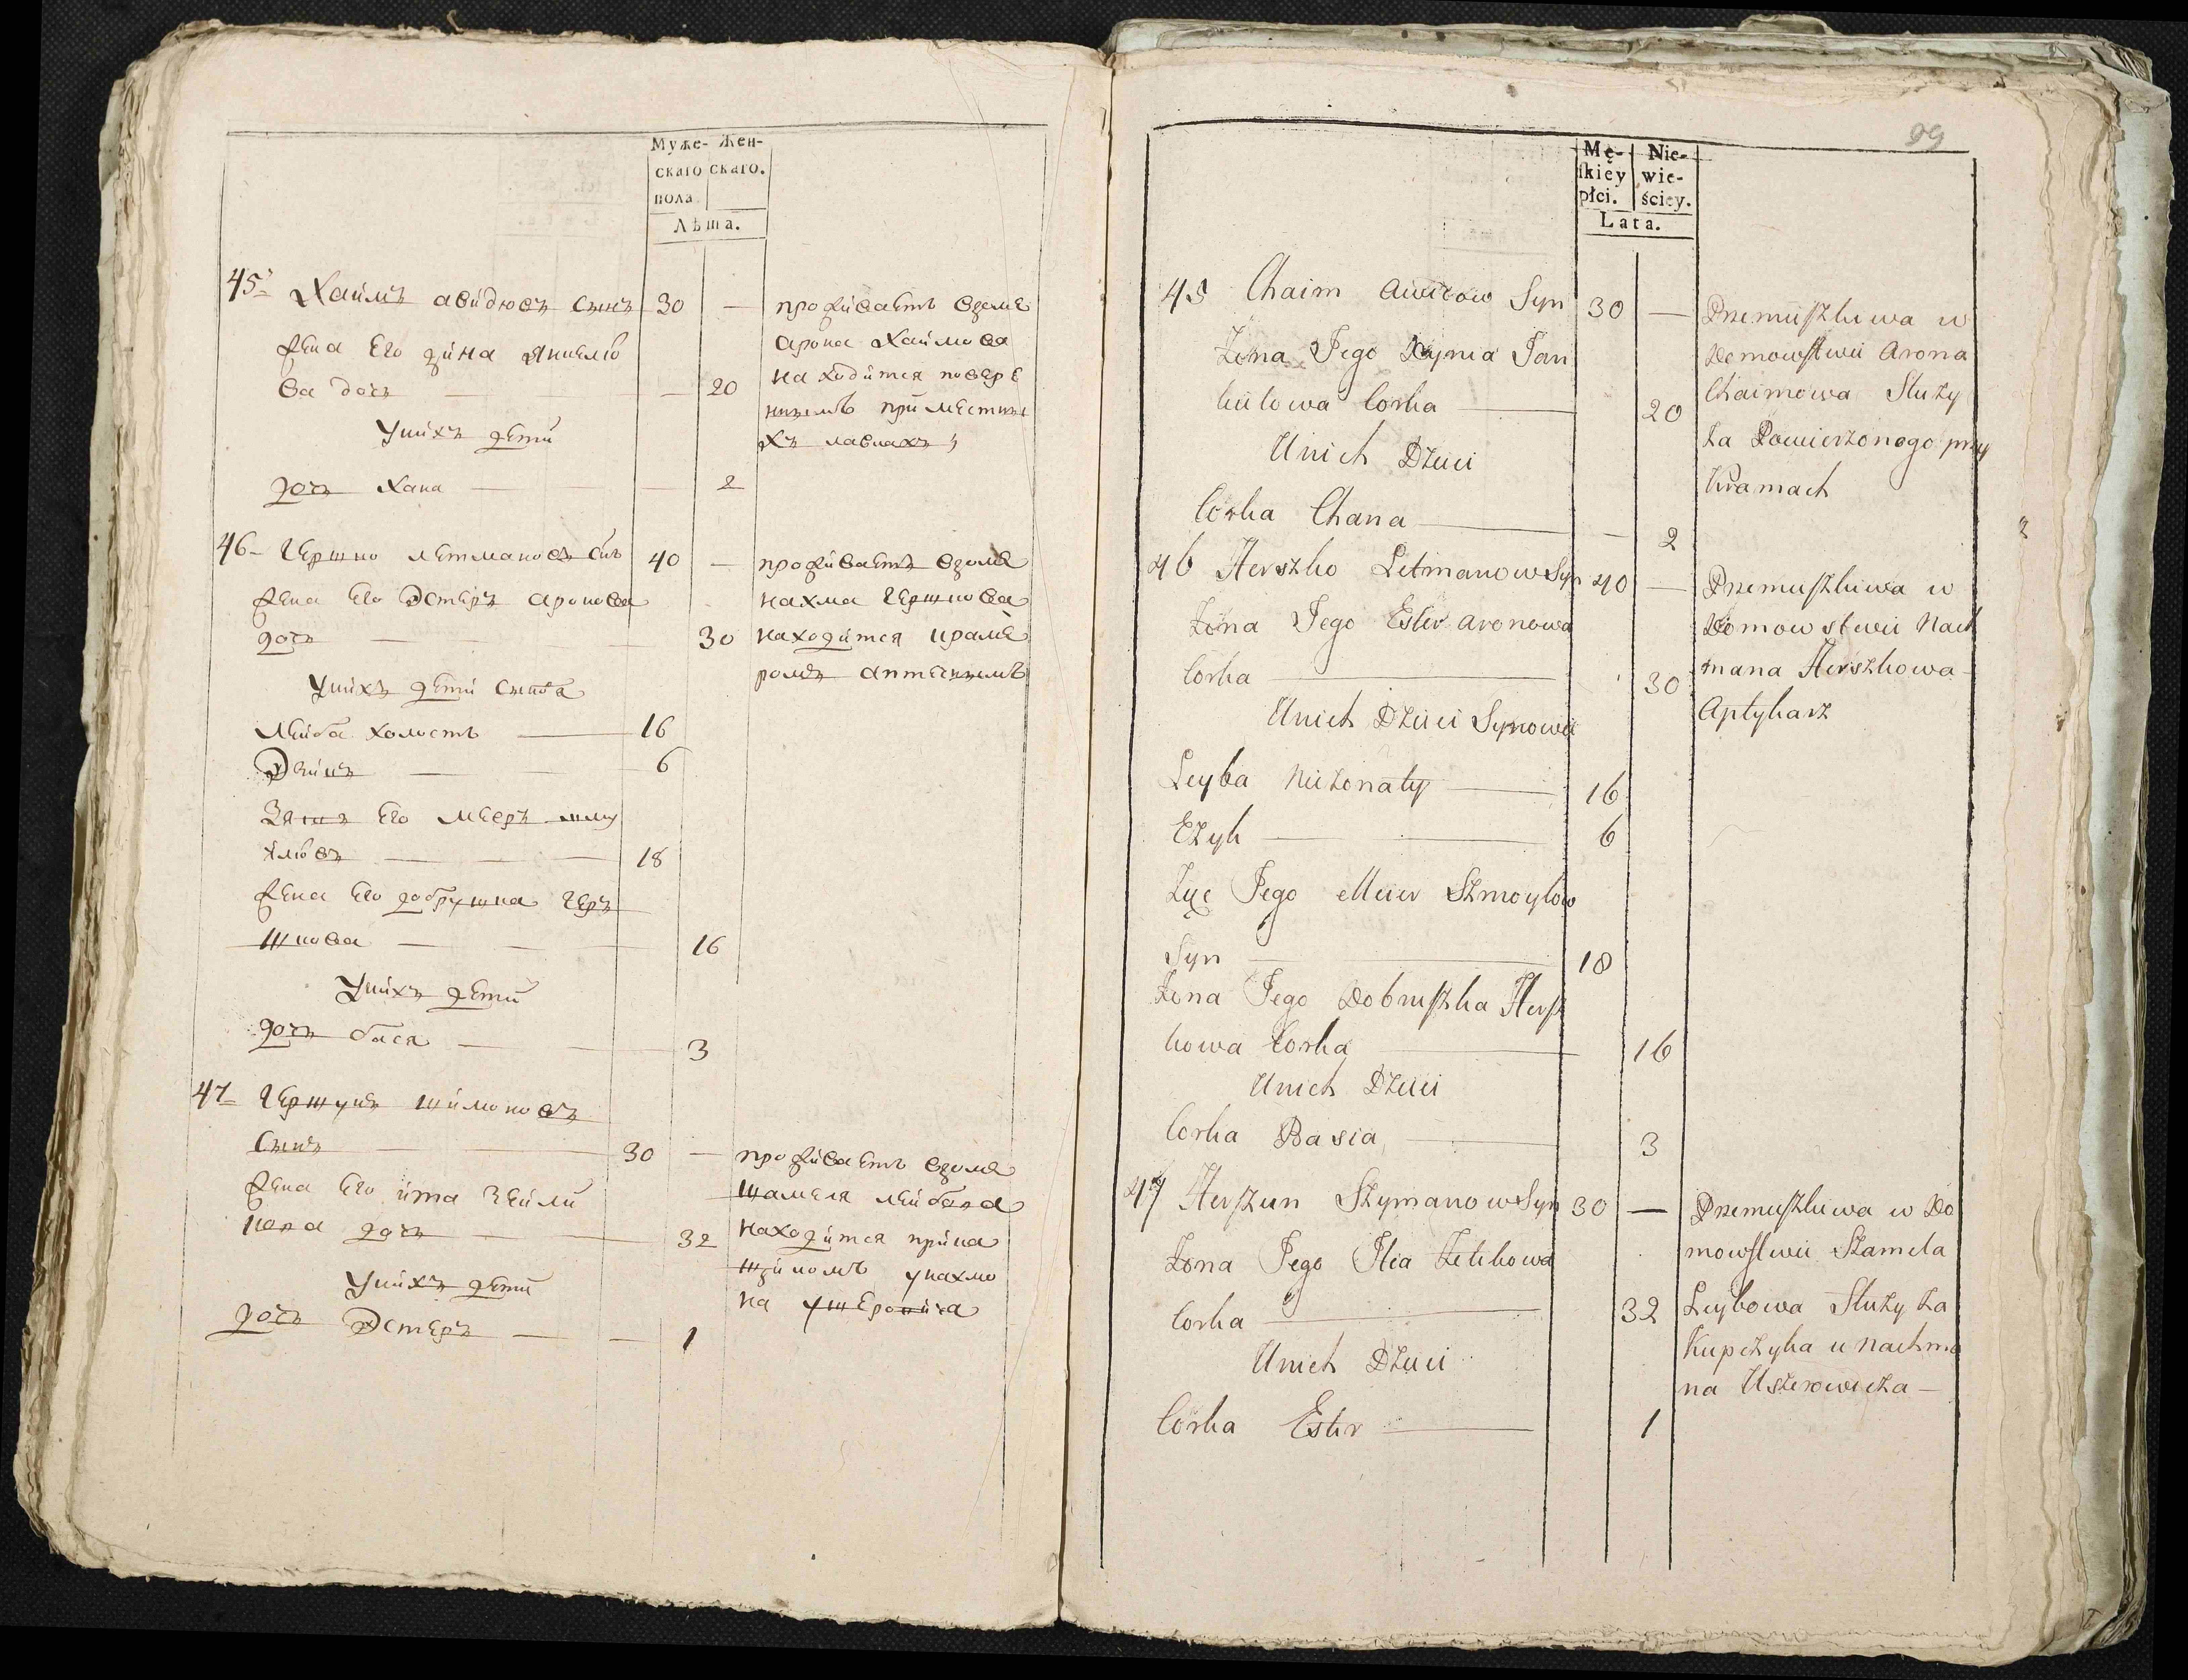 Муже- Жен-
скаго скаго.
пола
Лѣта.
45 Хаимъ авидювъ сынъ 30 — проживаетъ вдоме
жена Его дина янкелю
арона Хаимова
ва дочь — 20
находится повере
ннымъ при местны
унихъ дети
хъ лавкахъ
дочь Хана — 2
46 Гершко летмановъ снъ 40 — проживаетъ вдоме
жена Его Эстеръ аронова нахма Гершкова
дочь — 30 находится крамѣ
ромъ аптечнымъ
унихъ дети сынба
Лейба холостъ — 16
Эзикъ — 6
Зять Его Мееръ шму
йлювъ — 18
жена Его добрушка Гер
шкова — 16
унихъ дети
дочь бася — 3
47 Гершунъ шимоновъ
сынъ — 30 — проживаетъ вдоме
жена Его ита Зейли
шамеля лейбова
кова дочь — 32 находится прика
щикомъ унахмо
унихъ дети
на ушеровича
дочь Эстеръ — 1
99
Mę- Nie-
skiey wie-
płci. ściey.
Lata.
45 Chaim Awidow Syn 30 — Przemiszkiwa w
Żona Jego Dynia Jan
Domowstwii Arona
kielowa Corka — 20
Chaimowa Służy
Za Powierzonego przy
Unich Dzieci
Kramach
Corka Chana — 2
46 Herszko Letmanow Syn 40 — Przemiszkiwa w
Żona Jego Ester Aronowa
Domowstwii Nach
Corka — 30
mana Herszkowa
Aptykarz
Unich Dzieci Synowie
Leyba Nieżonaty — 16
Ezyk — 6
Zięc Jego Meier Szmoylow
Syn — 18
Żona Jego Dobruszka Hersz
kowa Corka — 16
Unich Dzieci
Corka Basia — 3
47 Herszun Szymanow Syn 30 — Przemuszkiwa w Do
Żona Jego Itia Zelikowa
mowstwii Szamela
Corka — 32
Leybowa Służy Za
Kupczyka u Nachma
Unich Dzieci
na Uszerowicza —
Corka Ester — 1